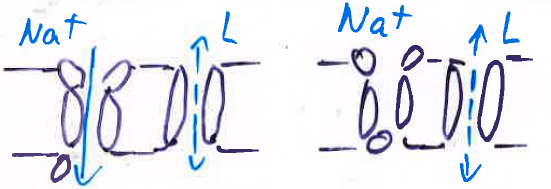 Na+ L
Na+ L